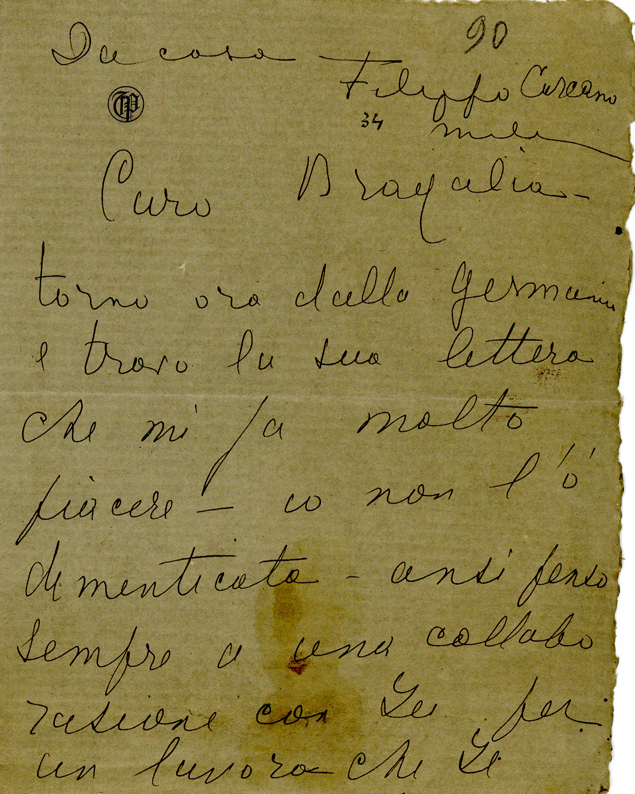 90
Da casa —
Filippo Carcano
34 Milano
Caro Bragalia —
torno ora dalla Germania
e trovo la sua lettera
che mi fa molto
piacere — io non l'ò
dimenticata — ansi penso
sempre a una collabo
rasione con Lei per
un lavoro che Le